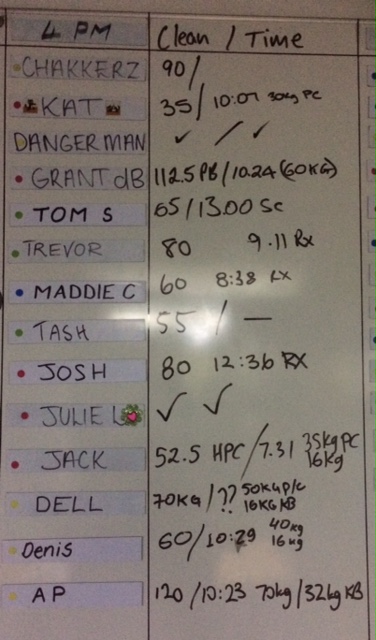 4 PM Clean / Time
CHAKKERZ 90/
KAT 35/ 10:07 30kg PC
DANGERMAN ✓ / ✓
GRANT dB 112.5 PB / 10.24 (60KG)
TOM S 65/13.00 Sc
TREVOR 80 9.11 Rx
MADDIE C 60 8:38 RX
TASH 55 / —
JOSH 80 12:36 RX
JULIE L ✓ ✓
JACK 52.5 HPC / 7.31 35kg PC 16kg
DELL 70KG / ?? 50KG P/C 16KG KB
Denis 60/10:29 40kg 16kg
AP 120 / 10:23 70kg / 32kg KB